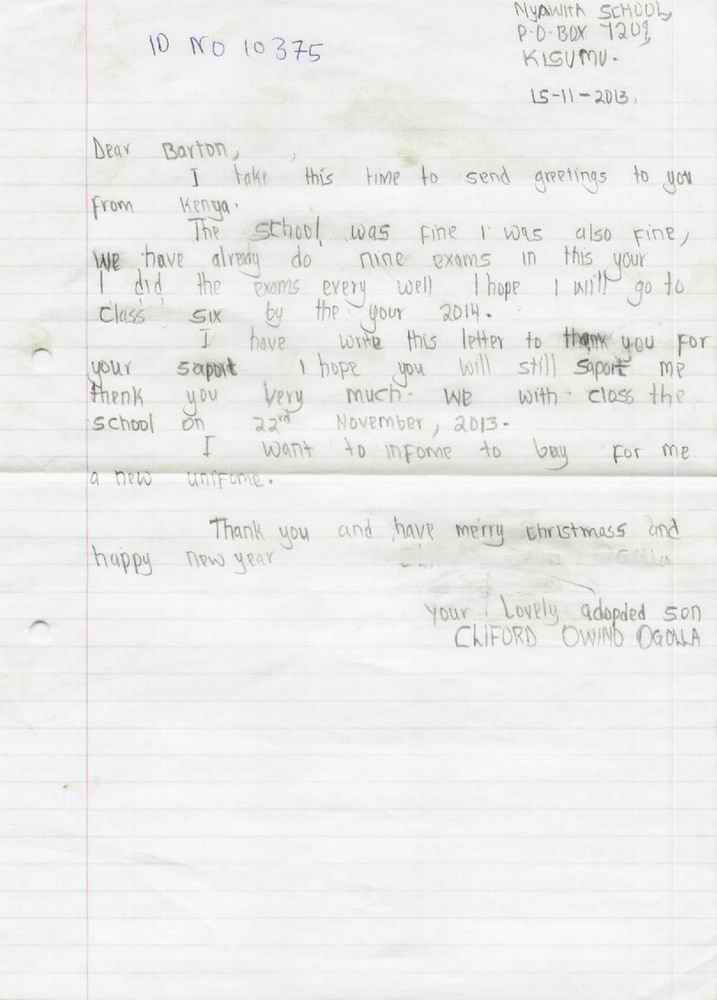 NYAWITA SCHOOL,
P.O.BOX 7209,
KISUMU.
ID NO 10375
15-11-2013.
Dear Barton,
I take this time to send greetings to you
from Kenya.
The school was fine I was also fine,
We have already do nine exams in this your
I did the exams every well I hope I will go to
class six by the your 2014.
I have write this letter to thank you for
your saport I hope you will still saport me
thenk you very much. We with class the
school on 22nd November, 2013.
I want to infome to bay for me
a new unifome.
Thank you and have merry christmass and
happy new year
your Lovely adopded son
CLIFORD OWINO OGOLLA